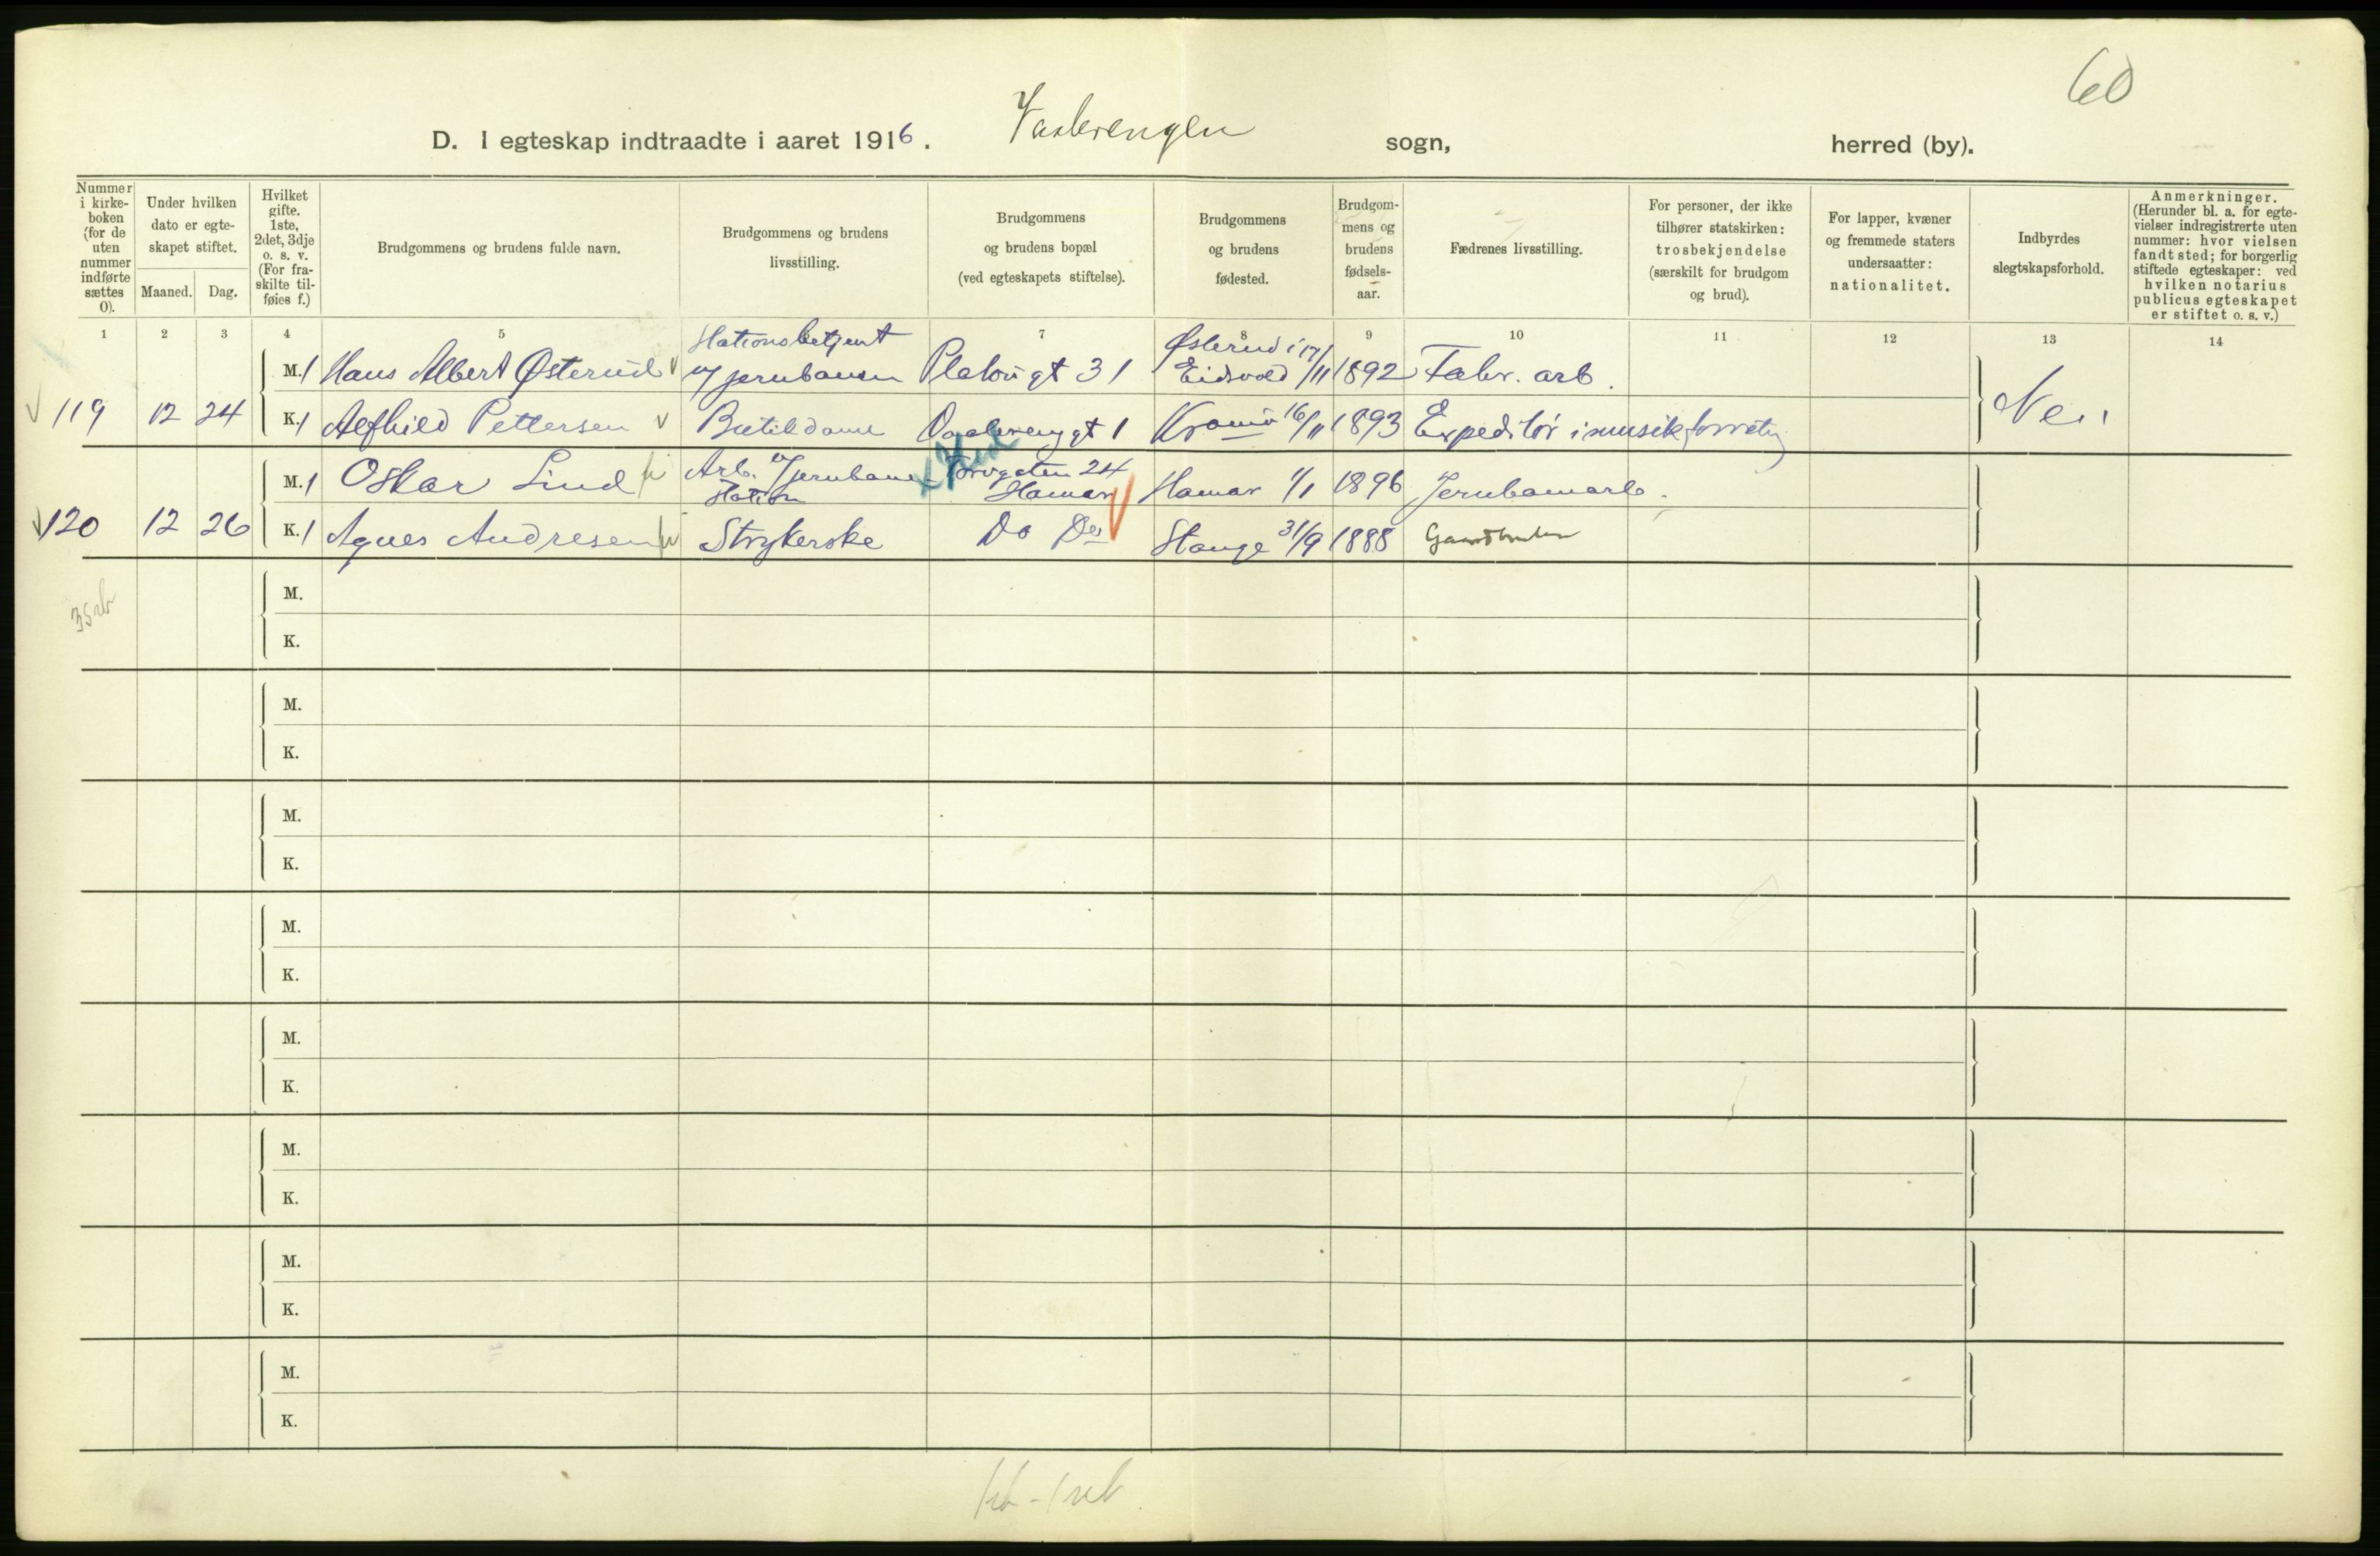 60
D. I egteskap indtraadte i aaret 1916. Vaalerengen sogn, herred (by).
Nummer i kirke-boken (for de uten nummer indførte sættes 0).
Under hvilken dato er egte-skapet stiftet.
Maaned. Dag.
Hvilket gifte. 1ste, 2det, 3dje o. s. v. (For fra-skilte til-føies f.)
Brudgommens og brudens fulde navn.
Brudgommens og brudens livsstilling.
Brudgommens og brudens bopæl (ved egteskapets stiftelse).
Brudgommens og brudens fødested.
Brudgom-mens og brudens fødsels-aar.
Fædrenes livsstilling.
For personer, der ikke tilhører statskirken: trosbekjendelse (særskilt for brudgom og brud).
For lapper, kvæner og fremmede staters undersaatter: nationalitet.
Indbyrdes slegtskapsforhold.
Anmerkninger. (Herunder bl. a. for egte-vielser indregistrerte uten nummer: hvor vielsen fandt sted; for borgerlig stiftede egteskaper: ved hvilken notarius publicus egteskapet er stiftet o. s. v.)
1 2 3 4 5 7 8 9 10 11 12 13 14
M. 1 Hans Albert Østerud Stationsbetjent v/ jernbanen Platougt 31 Østerud i Eidsvold 17/11 1892 Fabr. arb.
119 12 24 K. 1 Alfhild Pettersen Butikdame Vaalerengt 1 Krania 16/11 1893 Expeditør i musikforretn Nei
M. 1 Oskar Lind Arb. v/ Jernbane Station Torvgaten 24 Hamar Hamar 1/1 1896 Jernbanearb.
120 12 26 K. 1 Agnes Andresen Strykerske Do Do Stange 31/9 1888 Gaardbruker
M.
K.
M.
K.
M.
K.
M.
K.
M.
K.
M.
K.
M.
K.
M.
K.